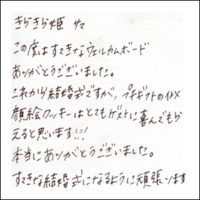 きらきら姫 サマ
この度はすてきなウェルカムボード
ありがとうございました。
これから結婚式ですが、プチギフトの
顔絵クッキーはとてもゲストに喜んでもら
えると思います!!!
本当にありがとうございました。
すてきな結婚式になるように頑張ります